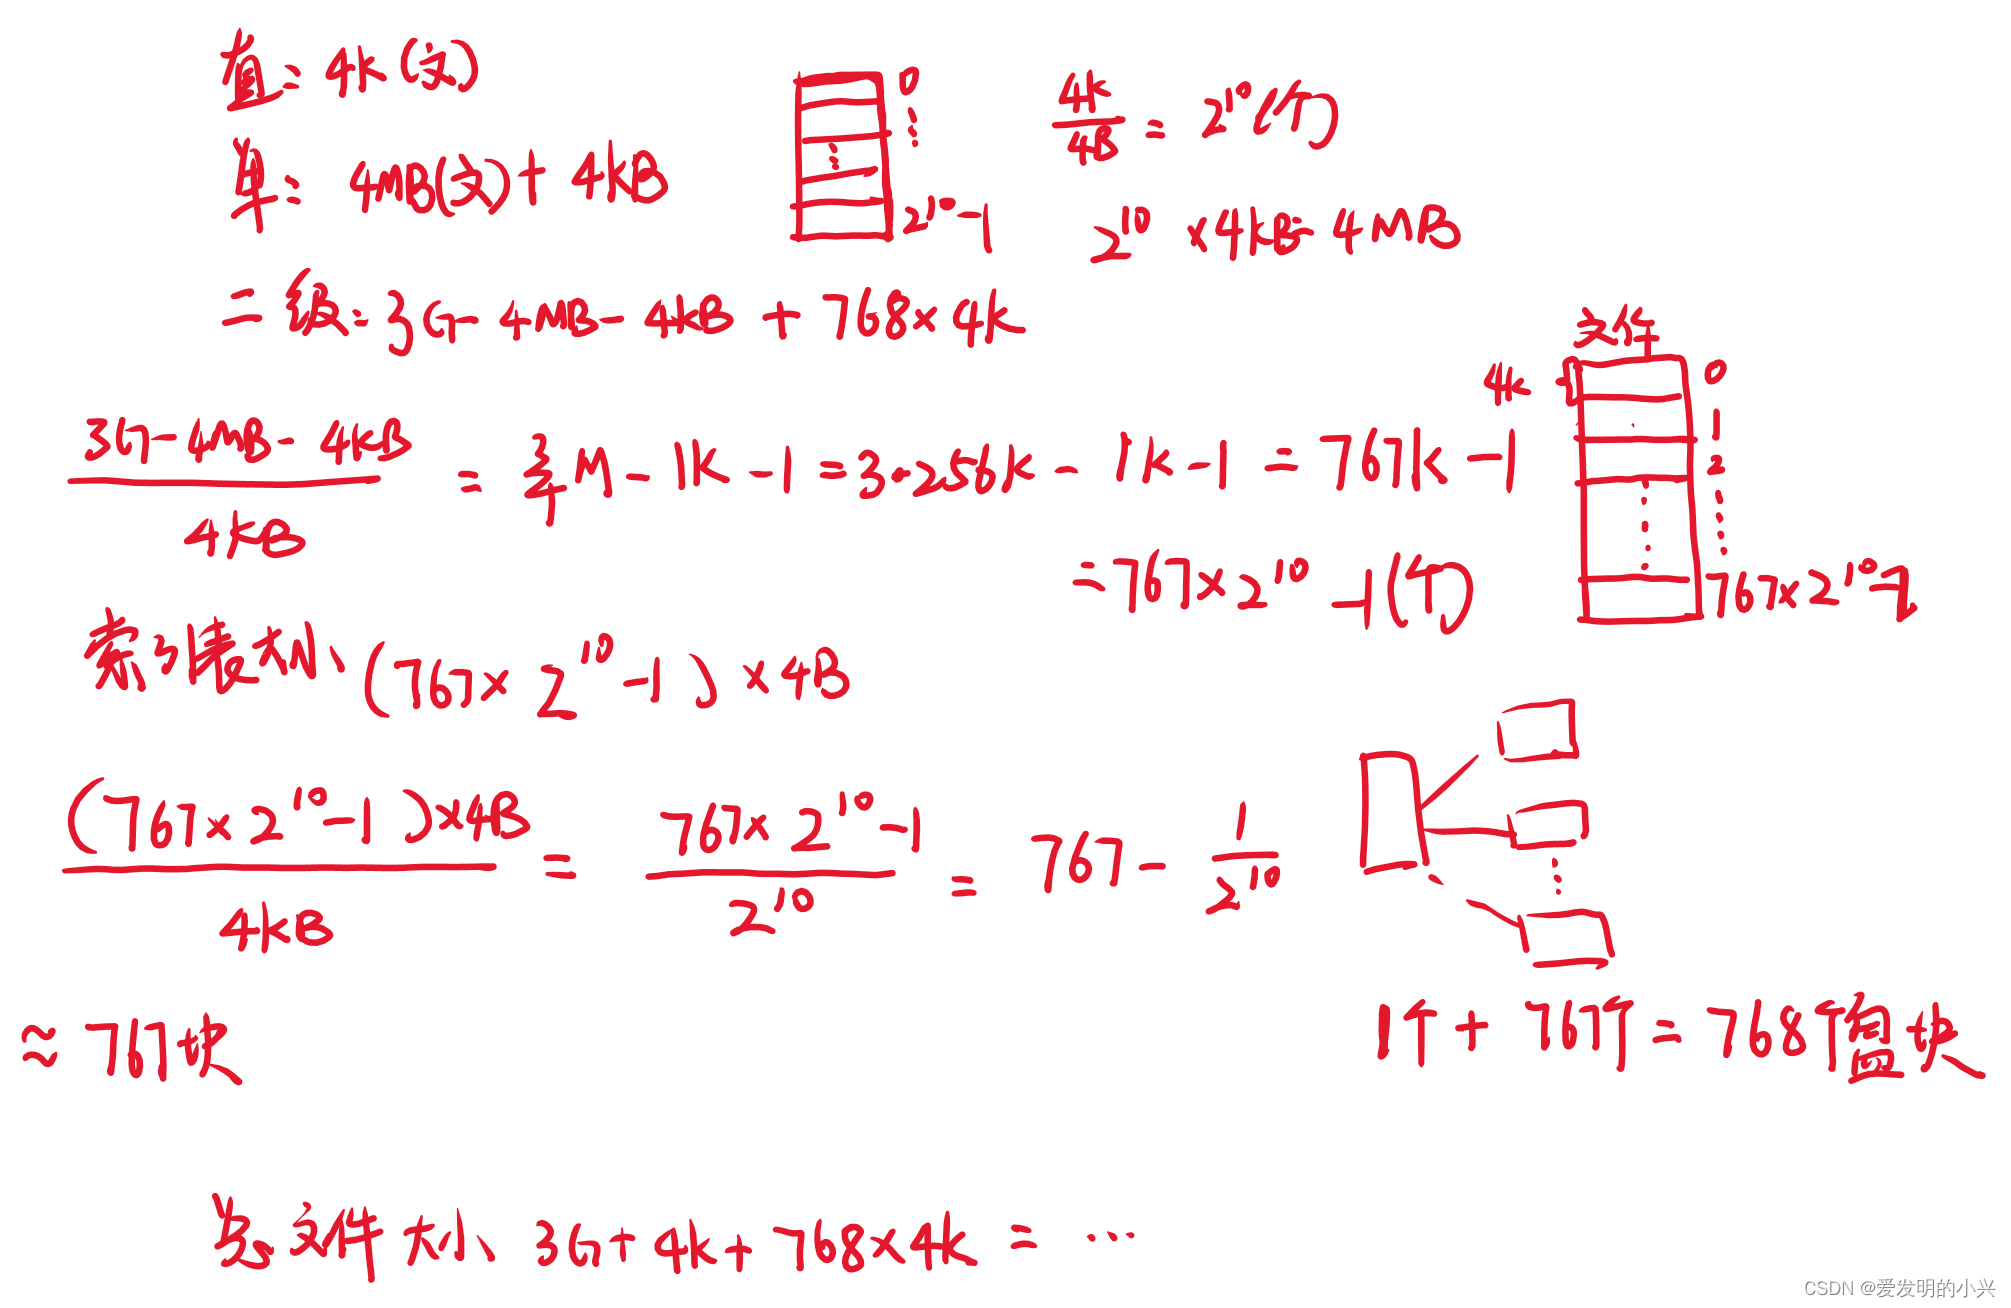 直: 4K(文)
0
⋮
2^10-1
4K/4B = 2^10(个)
单: 4MB(文)+ 4KB
2^10 ×4KB= 4MB
二级: 3G-4MB-4KB + 768×4K
文件
4K
0
1
2
⋮
767×2^10-2
(3G-4MB-4KB)/4KB = 3/4M - 1K -1 = 3·256K - 1K -1 = 767K -1
= 767×2^10 -1(个)
索引表大小 (767×2^10-1)×4B
((767×2^10-1)×4B)/4KB = (767×2^10-1)/2^10 = 767 - 1/2^10
≈ 767块
1个 + 767个 = 768个盘块
总文件大小 3G+4K+768×4K = …
CSDN @爱发明的小兴